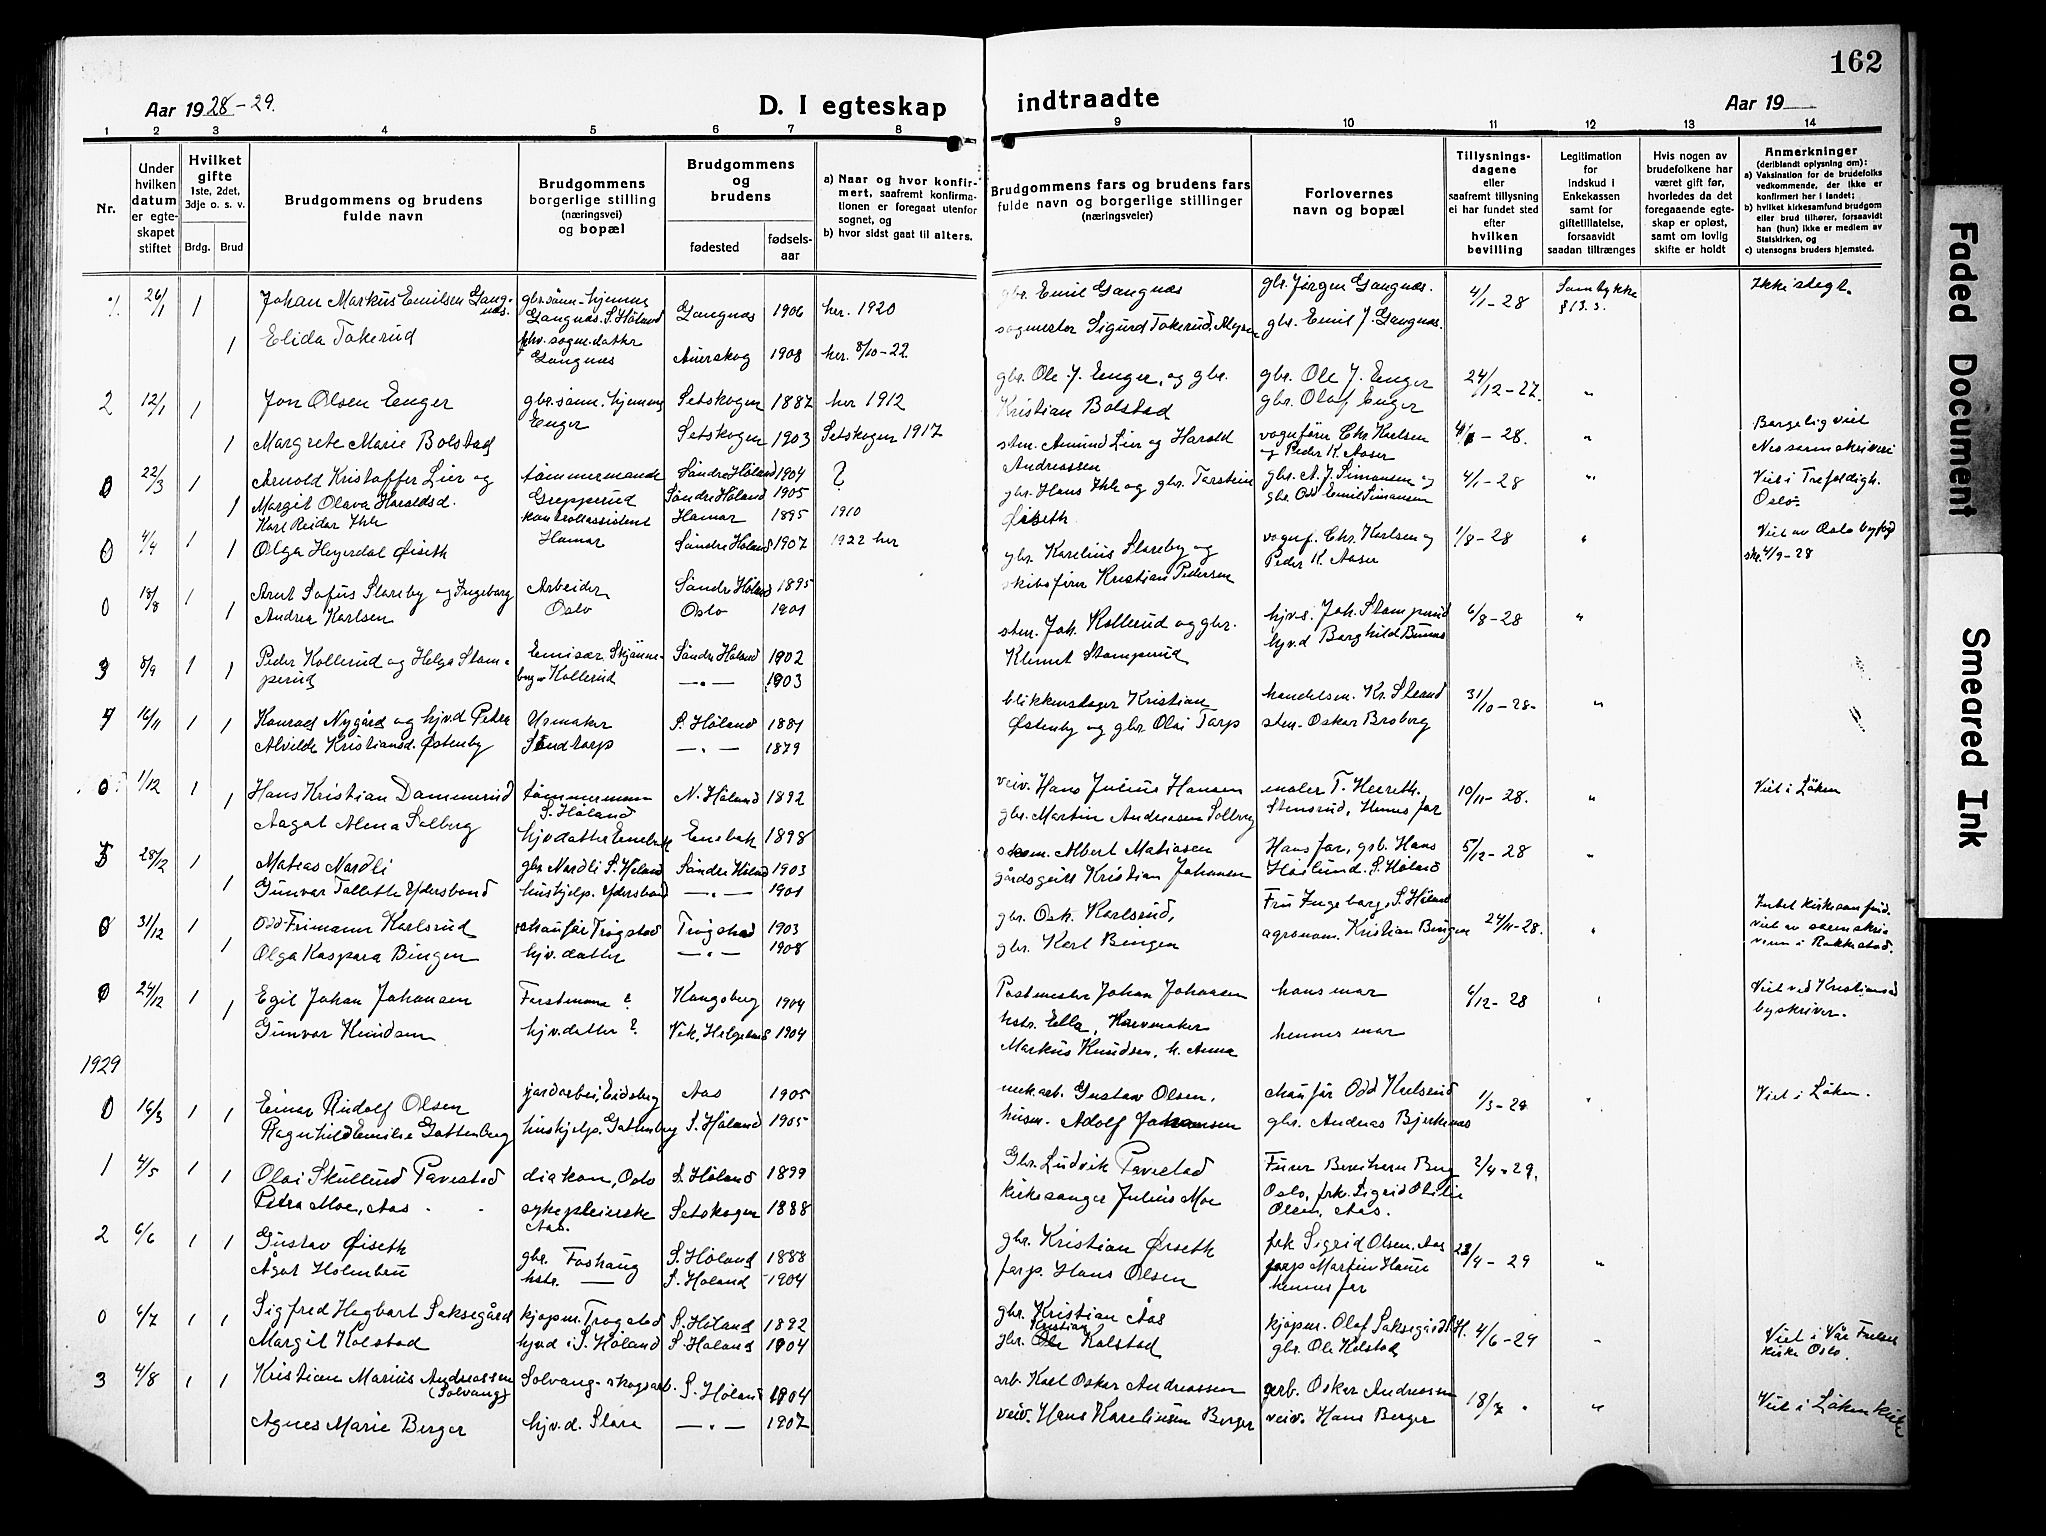 162
Aar 1928-29.
D. I egteskap indtraadte
Aar 19
1 2 3 4 5 6 7 8 9 10 11 12 13 14
Nr.
Under hvilken datum er egteskapet stiftet
Hvilket gifte
1ste, 2det, 3dje o. s. v.
Brdg. Brud
Brudgommens og brudens fulde navn
Brudgommens borgerlige stilling (næringsvei) og bopæl
Brudgommens og brudens
fødested
fødselsaar
a) Naar og hvor konfirmert, saafremt konfirmationen er foregaat utenfor sognet, og
b) hvor sidst gaat til alters.
Brudgommens fars og brudens fars fulde navn og borgerlige stillinger (næringsveier)
Forlovernes navn og bopæl
Tillysningsdagene eller saafremt tillysning ei har fundet sted efter hvilken bevilling
Legitimation for indskud i Enkekassen samt for giftetillatelse, forsaavidt saadan tiltrænges
Hvis nogen av brudefolkene har været gift før, hvorledes da det foregaaende egteskap er opløst, samt om lovlig skifte er holdt
Anmerkninger
(deriblandt oplysning om):
a) Vaksination for de brudefolks vedkommende, der ikke er konfirmert her i landet;
b) hvilket kirkesamfund brudgom eller brud tilhører, forsaavidt han (hun) ikke er medlem av Statskirken, og
c) utensogns bruders hjemsted.
26/1 1 Johan Markus Emilsen Gangnæs. gbr.sønn hjemme Gangnæs. S. Høland Gangnæs 1906 her. 1920 gbr. Emil Gangnæs gbr. Jørgen Gangnæs. 4/1-28 Samtykke § 13.3. Ikke slegt.
1 Elida Takerud Gangnæs Auerskog 1908 her. 8/10-22. sagmester Sigurd Takerud, gbr. Emil J. Gangnæs.
2 12/1 1 Jon Olsen Enger gbr.sønn. hjemme Enger Setskogen 1887 her 1912 gbr. Ole J. Enger, og gbr. Kristian Bolstad gbr. Ole J. Enger gbr. Olaf Enger 24/12-27. "
1 Margrete Marie Bolstad Setskogen 1903 Setskogen 1917
0 22/3 1 Arnold Kristoffer Lier og tømmermand Søndre Høland 1904 ? sten. Amund Lier og Harald Andreassen vognfører Chr. Karlsen og Peder K. Aaser - 28. " Borgerlig viet Nes sorenskriveri
1 Margit Olava Haraldsd. Grepperud Søndre Høland 1905
0 4/4 1 Karl Reidar Ihle kontrollassistent Hamar Hamar 1895 1910 gbr. Hans Ihle og gbr. Torstein Øiseth gbr. A. J. Simensen og gbr Odd Emil Simensen 4/1-28 " Viet i Trefoldigh. Oslo
1 Olga Heyerdal Øiseth Søndre Høland 1907 1922 her
0 18/8 1 Arnt Sofus Slareby og Ingeborg Arbeider Søndre Høland 1895 gbr. Karelius Slareby og skibsfører Kristian Pedersen vognf. Chr. Karlsen og Peder K. Aaser 1/8-28 " Viet av Oslo byfogd
1 Andrea Karlsen Oslo Oslo 1901
3 8/9 1 1 Peder Kollerud og Helga Stamperud Emisær. Kollerud Søndre Høland 1902 1903 sten. Joh. Kollerud og gbr. Klemet Stamperud hjvs. Joh. Stamperud hjv.d Borghild 6/8-28 "
4 16/11 1 1 Konrad Nygård og hjv.d Petra Urmaker S. Høland 1881 blikkenslager Kristian Østenby og gbr Olai Tarp handelsm. Kr. Strand sten. Oskar Broberg 31/10-28. "
Alvilde Kristiansd. Østenby 1879
0 1/12 1 Hans Kristian Dammerud tømmermann S. Høland N. Høland 1892 veiv. Hans Julius Hansen maler T. Stensrud, Hennes far 10/11-28. " Viet i Løken
1 Aagot Alma Solberg hjv.datter Enebak Enebak 1898 gbr. Martin Andreasen Solberg
5 28/12 1 Matias Nordli gbr Nordli S. Høland Søndre Høland 1903 Albert Matiasen Hans far, gsb. Hans Høislund. S. Høland 5/12-28 "
1 Gunvor Tallette Ydersbond hushjelp. Ydersbond 1901 gårdsgutt Kristian Johansen
0 31/12 1 Odd Frimann Karlsrud chaufør Trøgstad Trøgstad 1903 gbr. Osk. Karlsrud, Fru Ingeborg, S. Høland 24/11-28. " Intet kirkesamfund. viet av sorenskriveren i Rakkestad.
1 Olga Kaspara Bingen hjv.datter 1908 gbr. Karl Bingen agronom. Kristian Bingen
0 24/12 1 Egil Johan Johansen Forstmann ? Kongsberg 1904 Postmester Johan Johansen hstr. Ella, hans mor 6/12-28 Viet ved Kristiansand byskriver.
1 Gunvor Knudsen hjv.datter ? Vik, Helgeland 1904 Markus Knudsen, h. Anna hennes mor
1929
0 16/3 1 1 Einar Rudolf Olsen jordarbei. Eidsberg Aas 1905 Gustav Olsen. chaufør Odd Karlsrud 1/3-29 Viet i Løken.
Ragnhild Emilie Gattenberg hushjelp. Gattenberg S. Høland 1905 husm. Adolf Johansen gbr. Andreas Bjerkenæs
1 4/5 1 1 Olai Skullerud Tavestad diakon, Oslo S. Høland 1899 Gbr. Ludvik Tavestad Berg Oslo, frk. Sigrid Otilie Olsen, Aas. 2/4-29.
Petra Moe, Aas sykepleierske Aas. Setskogen 1888 kirkesanger Julius Moe
2 6/6 1 1 Gustav Øiseth gbr. Foshaug S. Høland 1888 gbr. Kristian Øiseth frk Sigrid Olsen. Aas 23/4-29 "
Ågot Holmbru hstr. S. Høland 1904 forp. Hans Olsen forp Martin hennes far
0 6/7 1 1 Sigfred Hagbart Saksegård kjøpm. Trøgstad S. Høland 1892 gbr. Kristian Aas kjøpm. Olaf Saksegård 4/6-29 Viet i Vår Frelser kirke Oslo.
Margit Kolstad hjv.d i S. Høland S. Høland 1904 gbr. Kristian Kolstad gbr. Ole Kolstad
3 4/8 1 1 Kristian Marius Andreassen (Solvang) Solvang - skogsarb. S. Høland 1904 arb. Karl Oskar Andreassen arb. Oskar Andreassen 18/7 " Viet i Løken kirke
Agnes Marie Berger hjv.d. Slora 1907 veiv. Hans Karelinsen Berger veiv. Hans Berger
Faded Document
Smeared Ink